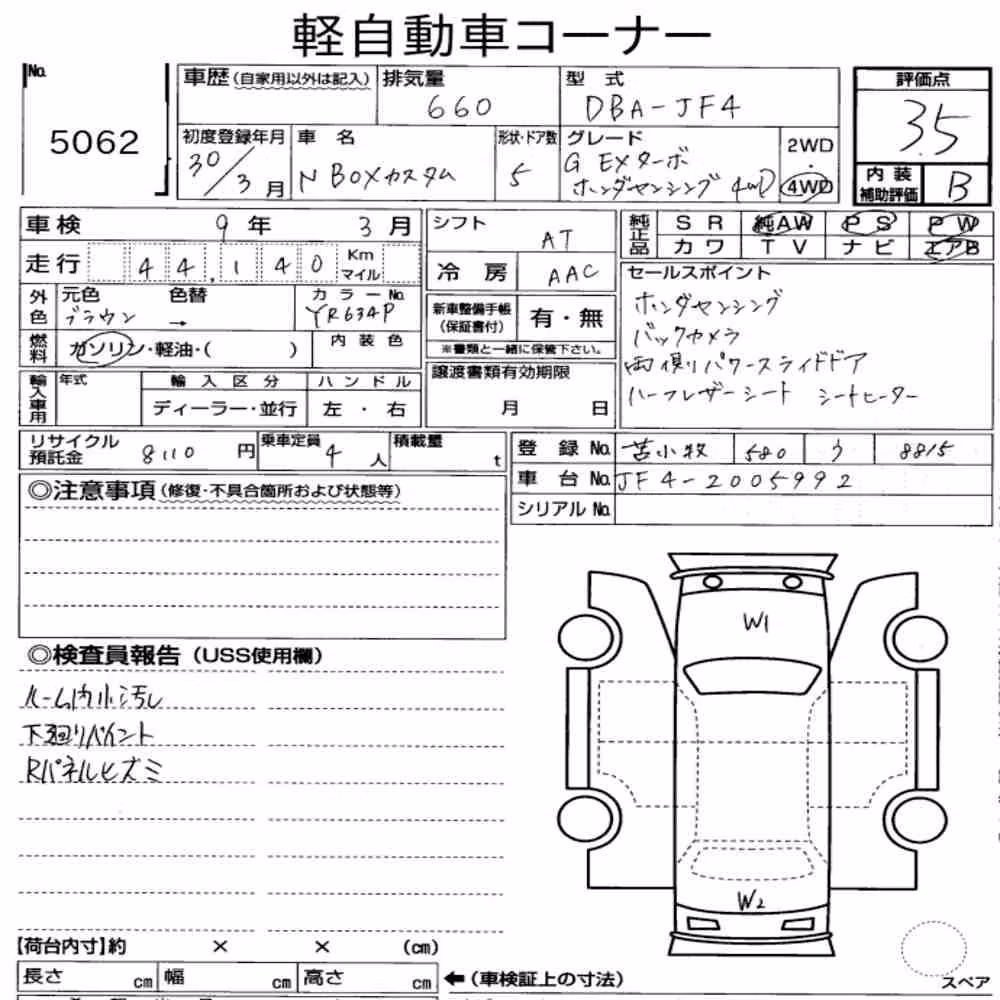 軽自動車コーナー
No. 5062
車歴(自家用以外は記入) 排気量 660 型式 DBA-JF4
評価点 3.5
初度登録年月 30/3月 車名 N BOXカスタム 形状・ドア数 5 グレード G EXターボ ホンダセンシング 4WD 2WD・4WD
内装補助評価 B
車検 9年 3月 シフト AT 純正品 SR 純AW PS PW
カワ TV ナビ エアB
走行 44,140 Km マイル 冷房 AAC
セールスポイント
ホンダセンシング
バックカメラ
両側パワースライドドア
ハーフレザーシート シートヒーター
外色 元色 ブラウン 色替 → カラーNo. YR634P
新車整備手帳(保証書付) 有・無
※書類と一緒に保管下さい。
燃料 ガソリン・軽油・( ) 内装色
輸入車用 年式 輸入区分 ハンドル
ディーラー・並行 左・右
譲渡書類有効期限
月 日
リサイクル預託金 8110円 乗車定員 4人 積載量 t
登録No. 苫小牧 580 う 8815
車台No. JF4-2005992
シリアルNo.
◎注意事項(修復・不具合箇所および状態等)
◎検査員報告(USS使用欄)
ルーム内小汚し
下廻りペイント
Rパネルヒズミ
W1
W2
【荷台内寸】約 × × (cm)
長さ cm 幅 cm 高さ cm ←(車検証上の寸法)
スペア